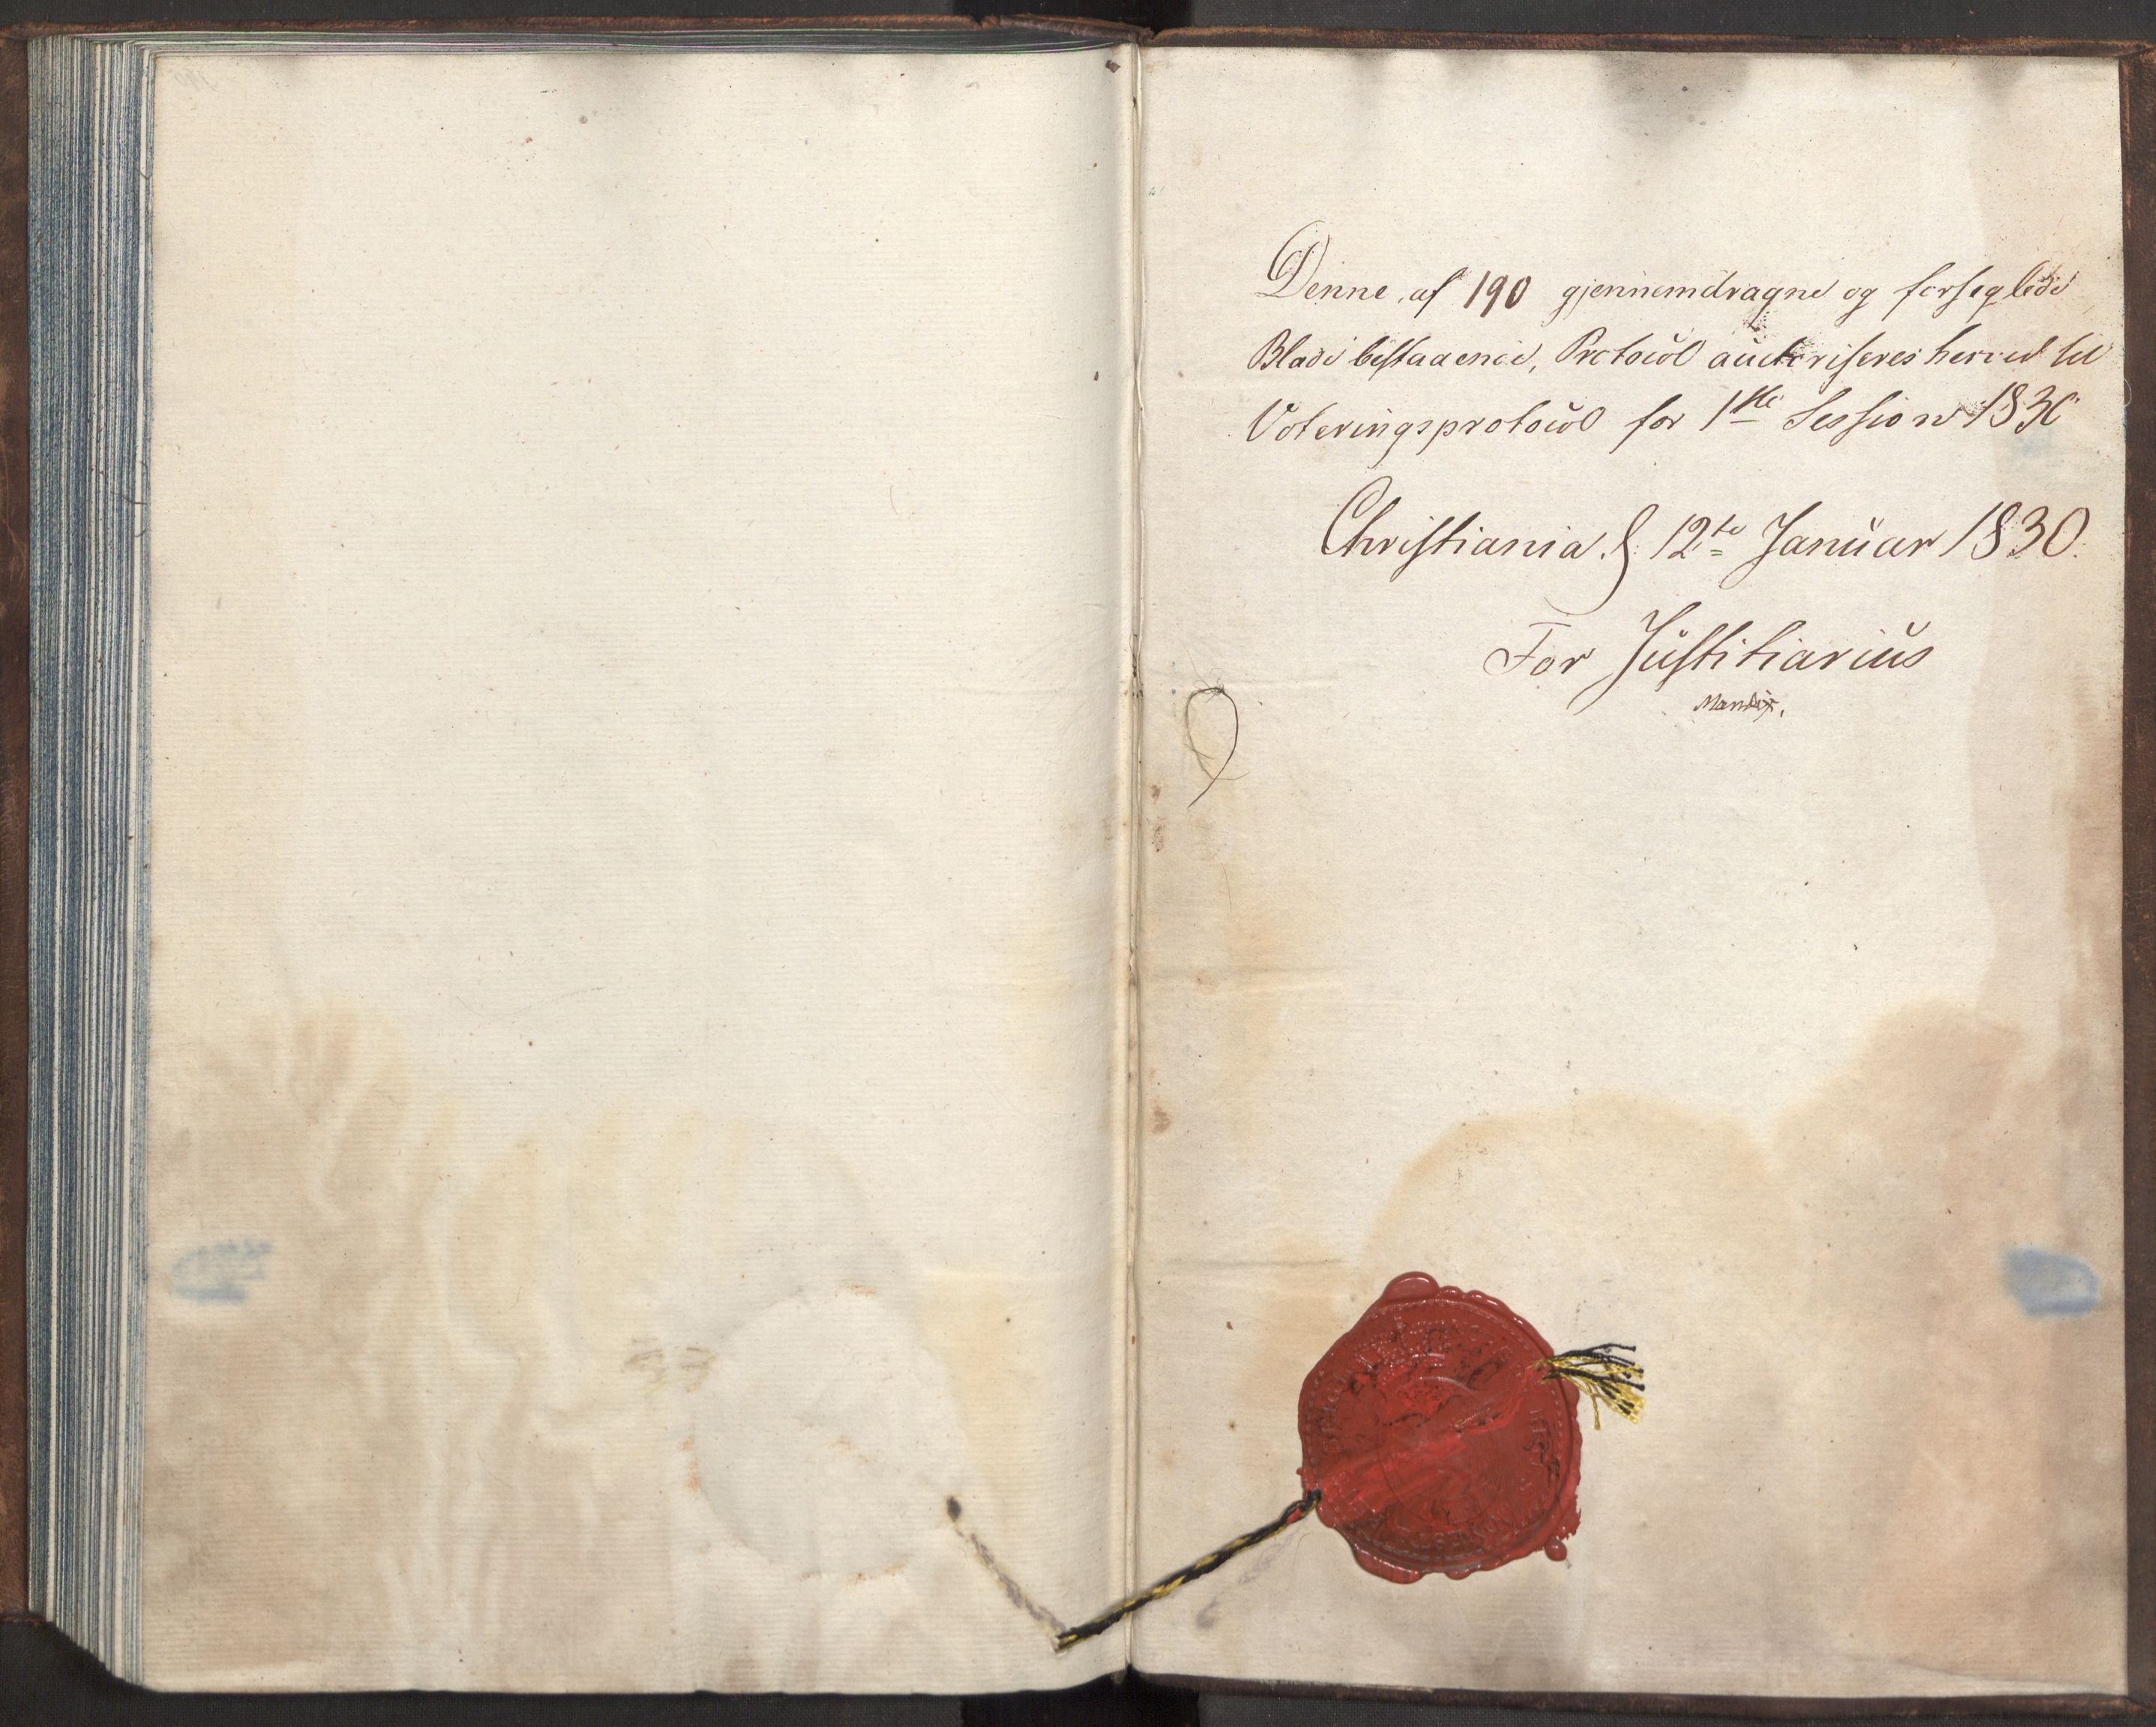 Denne, af 190 gjennemdragne og forseglede
Blade bestaaende, Protocol auctoriseres herved til
Voteringsprotocol for 1ste Session 1830
Christiania d. 12te Januar 1830.
For Justitiarius